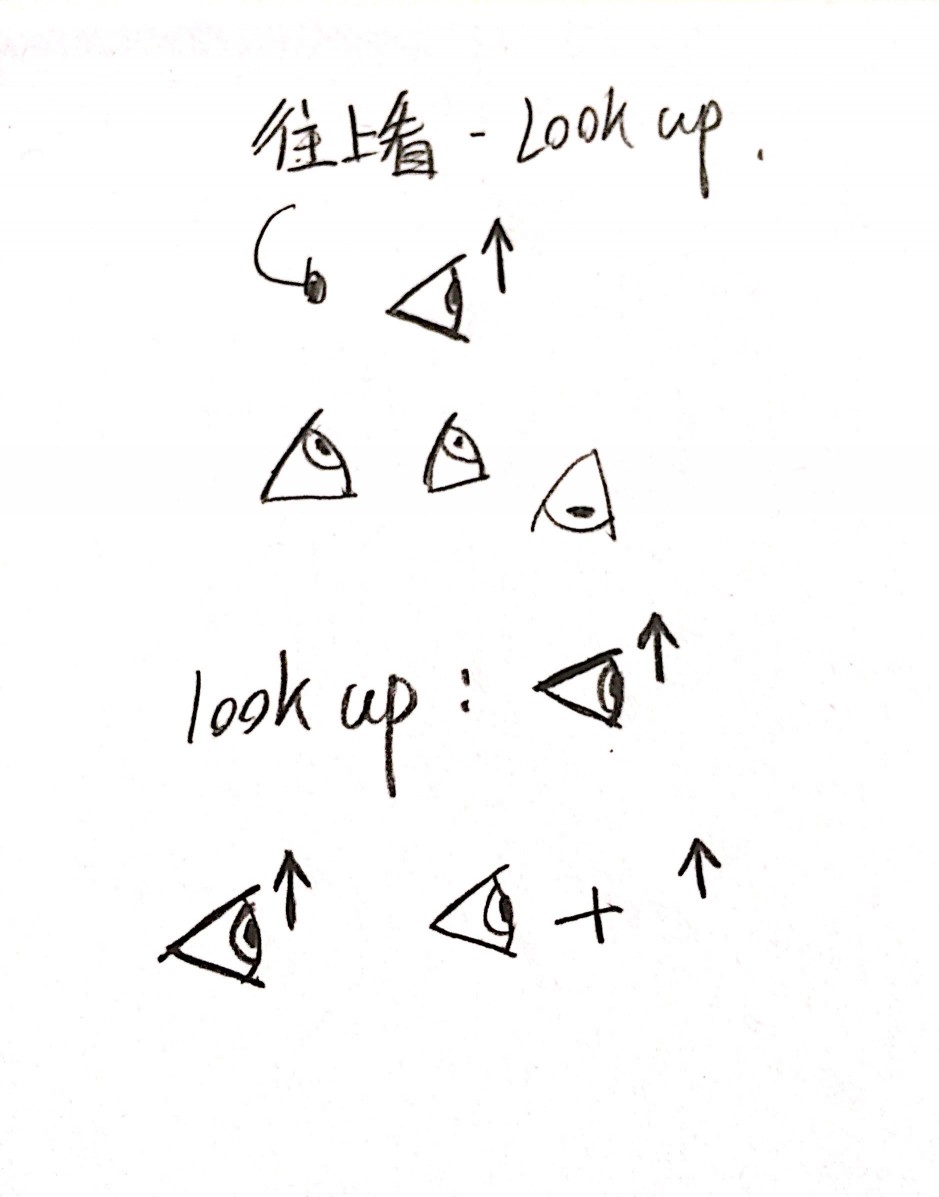 往上看 - Look up.
look up :